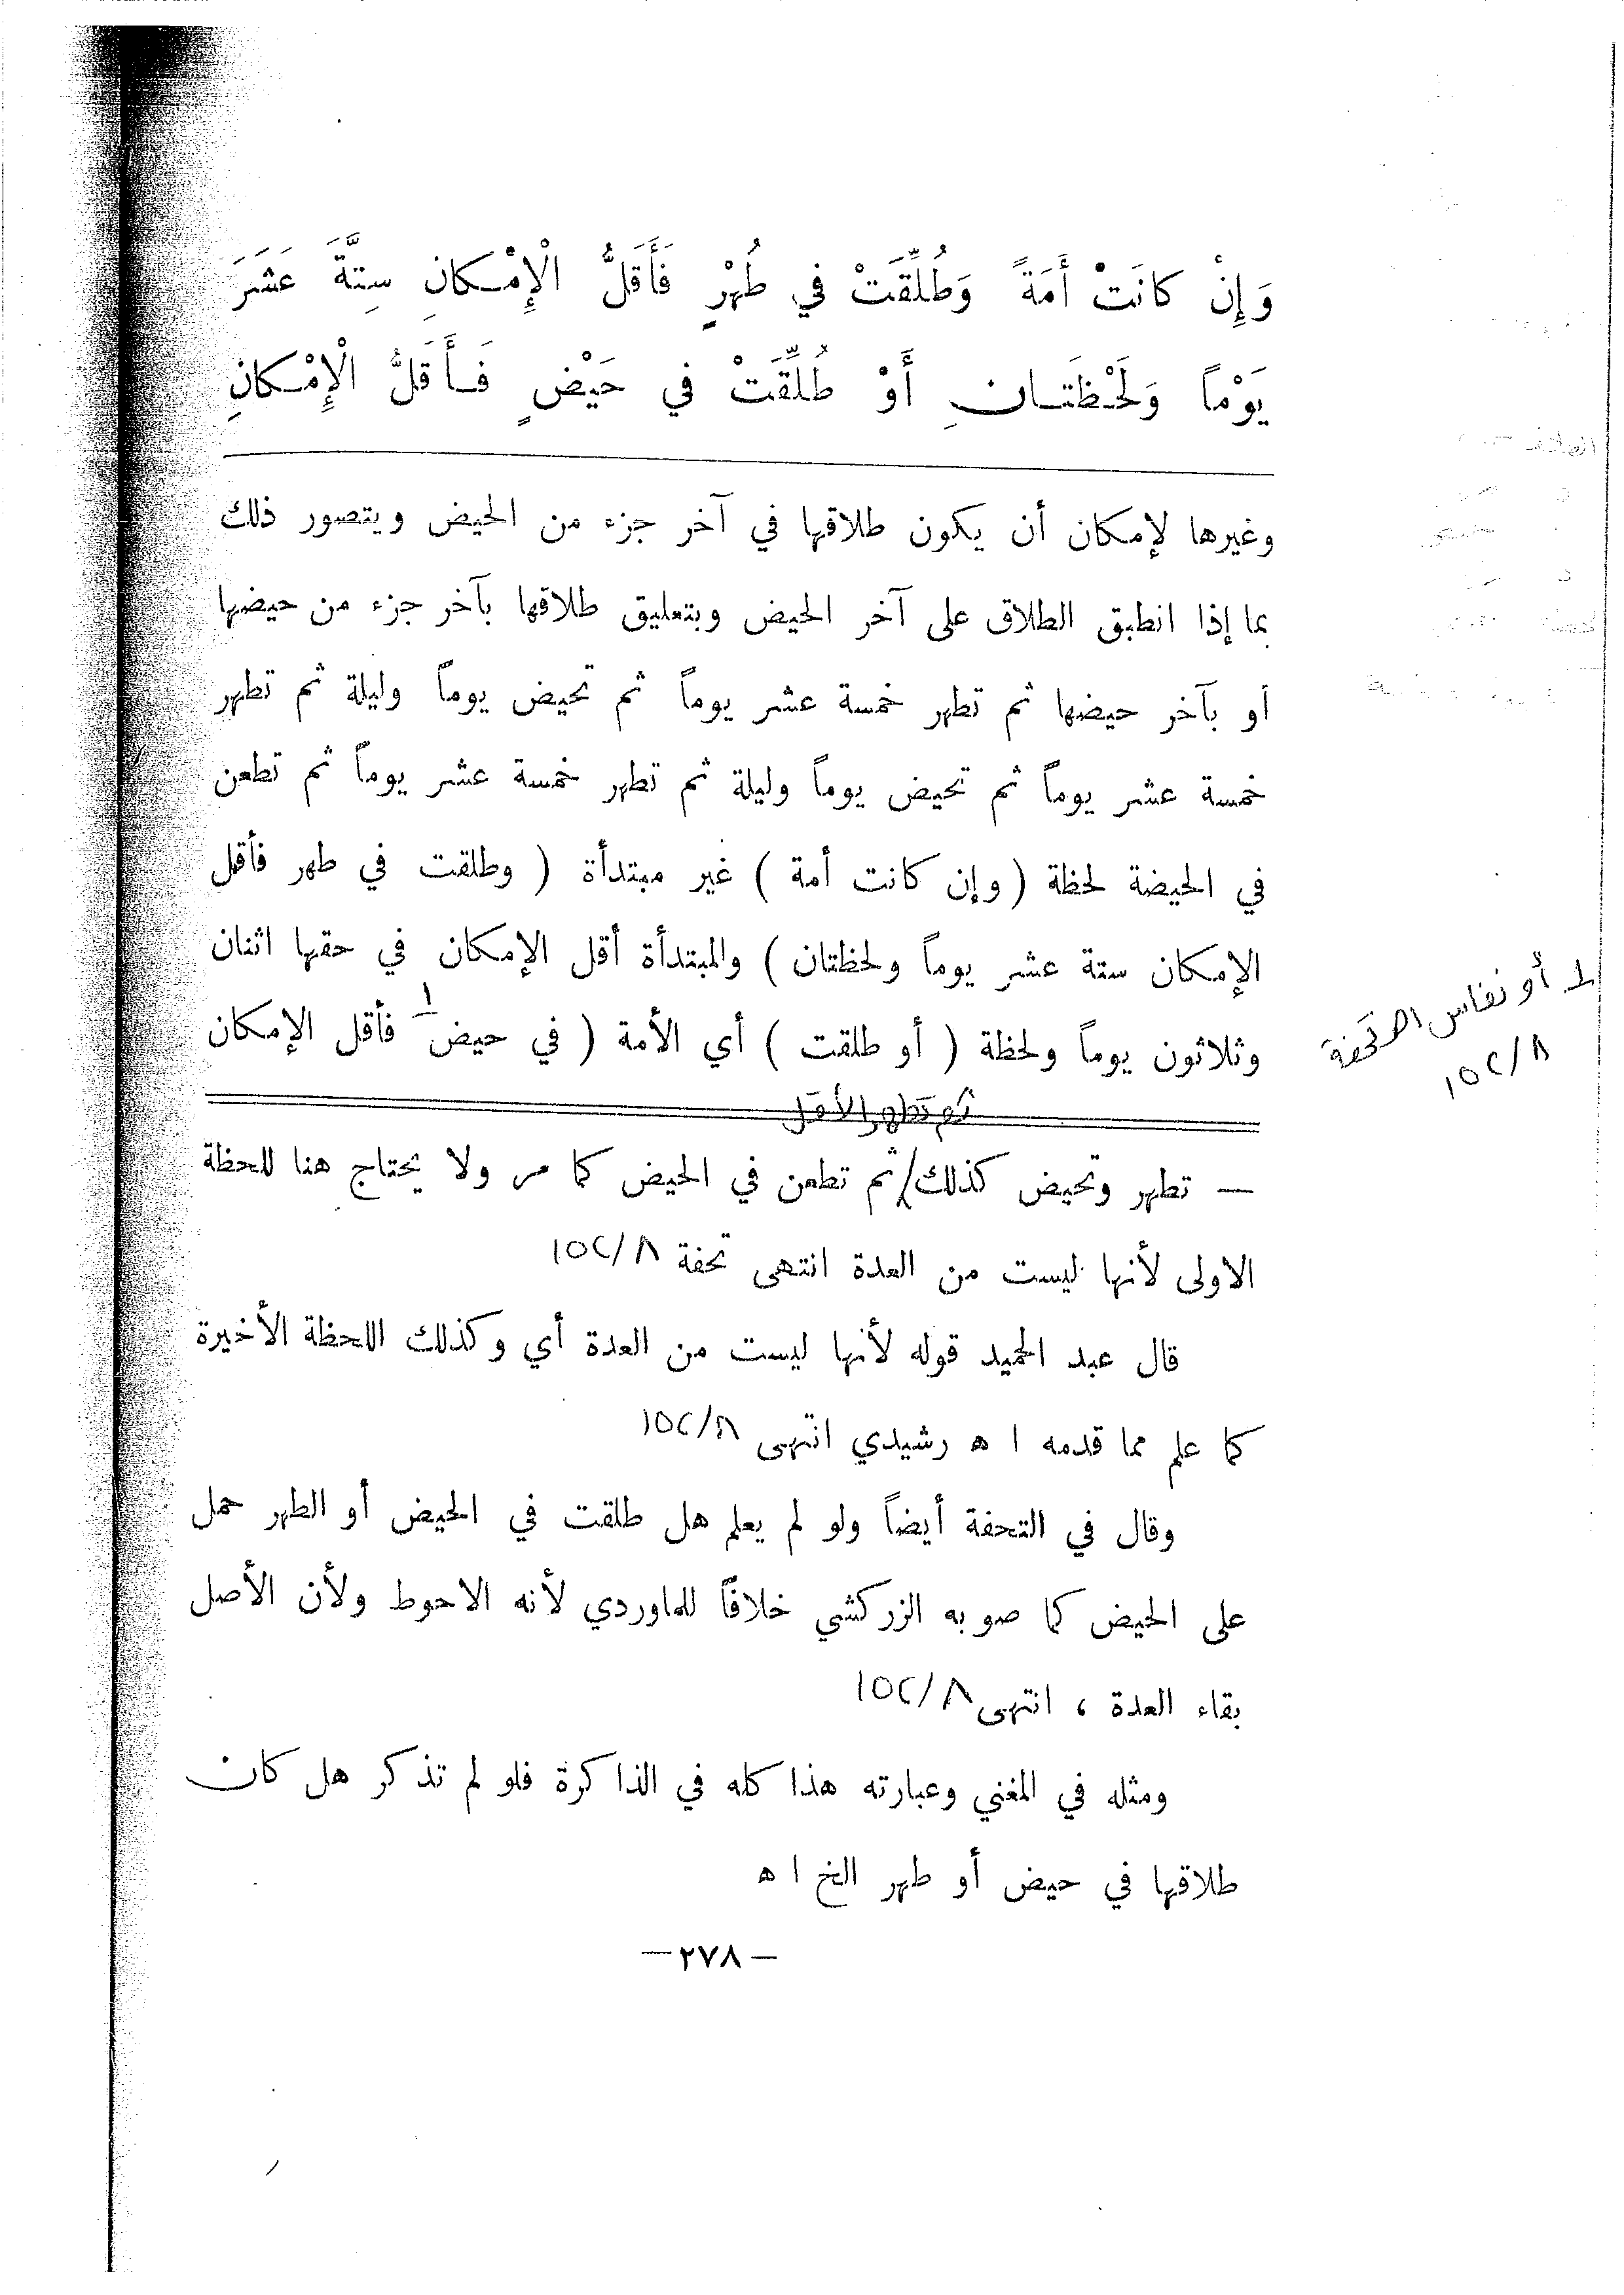 وَإِنْ كانَتْ أَمَةً وَطُلِّقَتْ في طُهْرٍ فَأَقَلُّ الْإِمْـكانِ سِتَّةَ عَشَرَ
يَوْماً وَلَحْـظَتَـانِ أَوْ طُلِّقَتْ في حَيْضٍ فَـأَقَلُّ الْإِمْـكانِ
وغيرها لإمكان أن يكون طلاقها في آخر جزء من الحيض ويتصور ذلك
بما إذا انطبق الطلاق على آخر الحيض وبتعليق طلاقها بآخر جزء من حيضها
أو بآخر حيضها ثم تطهر خمسة عشر يوماً ثم تحيض يوماً وليلة ثم تطهر
خمسة عشر يوماً ثم تحيض يوماً وليلة ثم تطهر خمسة عشر يوماً ثم تطعن
في الحيضة لحظة ( وإن كانت أمة ) غير مبتدأة ( وطلقت في طهر فأقل
الإمكان ستة عشر يوماً ولحظتان ) والمبتدأة أقل الإمكان في حقها اثنان
وثلاثون يوماً ولحظة ( أو طلقت ) أي الأمة ( في حيض ١ فأقل الإمكان
أو نفاس اهـ تحفة
١٥٢/٨
ثم تطهر الأقل
— تطهر وتحيض كذلك/ ثم تطعن في الحيض كما مر ولا يحتاج هنا للحظة
الاولى لأنها ليست من العدة انتهى تحفة ١٥٢/٨
قال عبد الحميد قوله لأنها ليست من العدة أي وكذلك اللحظة الأخيرة
كما علم مما قدمه ا ه رشيدي انتهى ١٥٢/٨
وقال في التحفة أيضاً ولو لم يعلم هل طلقت في الحيض أو الطهر حمل
على الحيض كما صوبه الزركشي خلافاً للماوردي لأنه الاحوط ولأن الأصل
بقاء العدة ، انتهى ١٥٢/٨
ومثله في المغني وعبارته هذا كله في الذاكرة فلو لم تذكر هل كان
طلاقها في حيض أو طهر الخ ا ه
— ٢٧٨ —